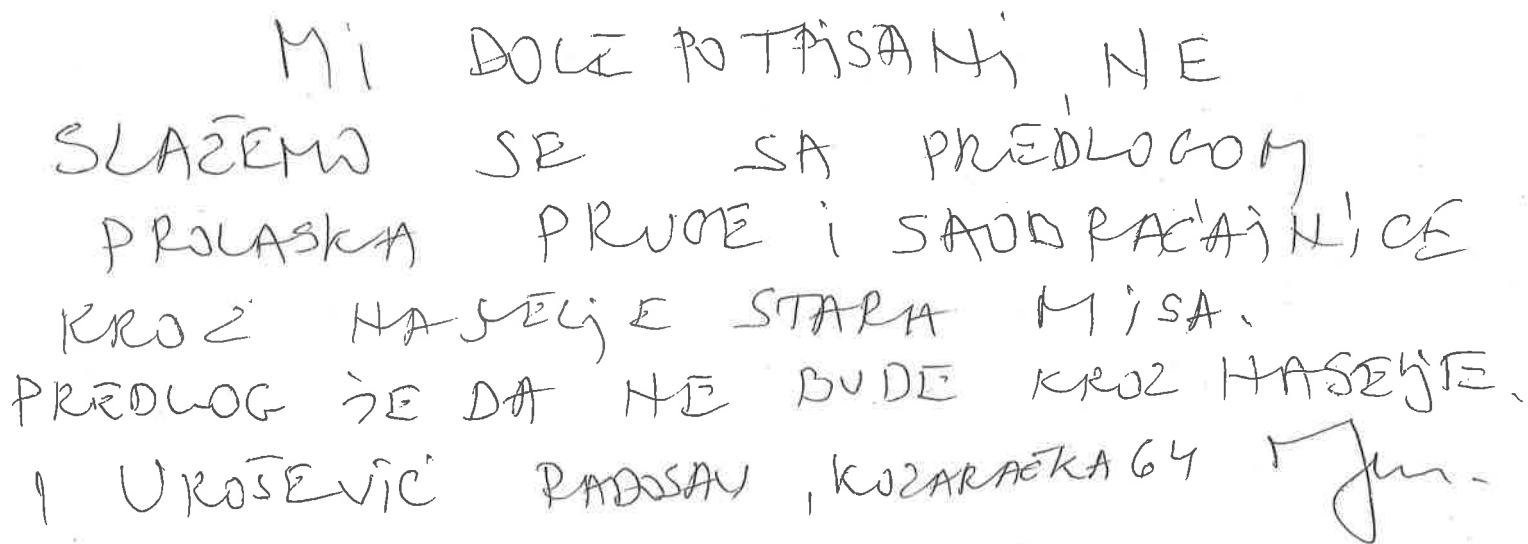 Mi DOLE POTPiSANi NE
SLAŽEMO SE SA PREDLOGOM
PROLASKA PRUGE i SAOBRAĆAjNiCE
KROZ NASELjE STARA MiSA.
PREDLOG jE DA NE BUDE KROZ NASELjE.
1 UROŠEViĆ RADOSAV, KOZARAČKA 64